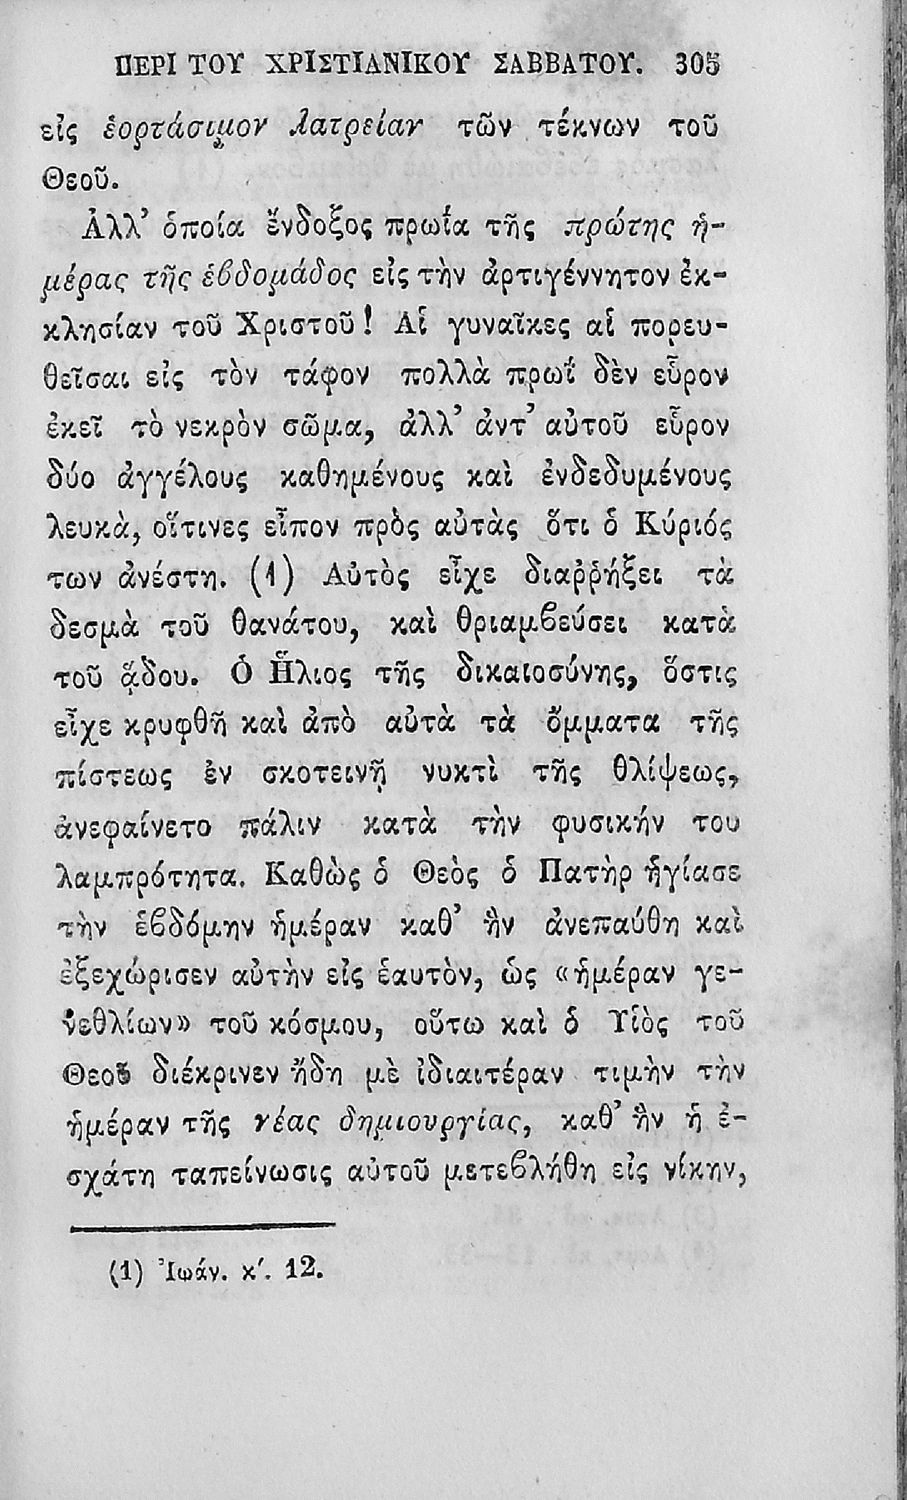 ΠΕΡΙ ΤΟΥ ΧΡΙΣΤΙΑΝΙΚΟΥ ΣΑΒΒΑΤΟΥ. 305
εἰς ἑορτάσιμον λατρείαν τῶν τέκνων τοῦ
Θεοῦ.
Ἀλλ’ ὁποία ἔνδοξος πρωΐα τῆς πρώτης ἡ-
μέρας τῆς ἑβδομάδος εἰς τὴν ἀρτιγέννητον ἐκ-
κλησίαν τοῦ Χριστοῦ! Αἱ γυναῖκες αἱ πορευ-
θεῖσαι εἰς τὸν τάφον πολλὰ πρωῒ δὲν εὗρον
ἐκεῖ τὸ νεκρὸν σῶμα, ἀλλ’ ἀντ’ αὐτοῦ εὗρον
δύο ἀγγέλους καθημένους καὶ ἐνδεδυμένους
λευκὰ, οἵτινες εἶπον πρὸς αὐτὰς ὅτι ὁ Κύριός
των ἀνέστη. (1) Αὐτὸς εἶχε διαῤῥήξει τὰ
δεσμὰ τοῦ θανάτου, καὶ θριαμβεύσει κατὰ
τοῦ ᾅδου. Ὁ Ἥλιος τῆς δικαιοσύνης, ὅστις
εἶχε κρυφθῆ καὶ ἀπὸ αὐτὰ τὰ ὄμματα τῆς
πίστεως ἐν σκοτεινῇ νυκτὶ τῆς θλίψεως,
ἀνεφαίνετο πάλιν κατὰ τὴν φυσικήν του
λαμπρότητα. Καθὼς ὁ Θεὸς ὁ Πατὴρ ἡγίασε
τὴν ἑβδόμην ἡμέραν καθ’ ἣν ἀνεπαύθη καὶ
ἐξεχώρισεν αὐτὴν εἰς ἑαυτὸν, ὡς «ἡμέραν γε-
νεθλίων» τοῦ κόσμου, οὕτω καὶ ὁ Υἱὸς τοῦ
Θεοῦ διέκρινεν ἤδη μὲ ἰδιαιτέραν τιμὴν τὴν
ἡμέραν τῆς νέας δημιουργίας, καθ’ ἣν ἡ ἐ-
σχάτη ταπείνωσις αὐτοῦ μετεβλήθη εἰς νίκην,
(1) Ἰωάν. κ′. 12.